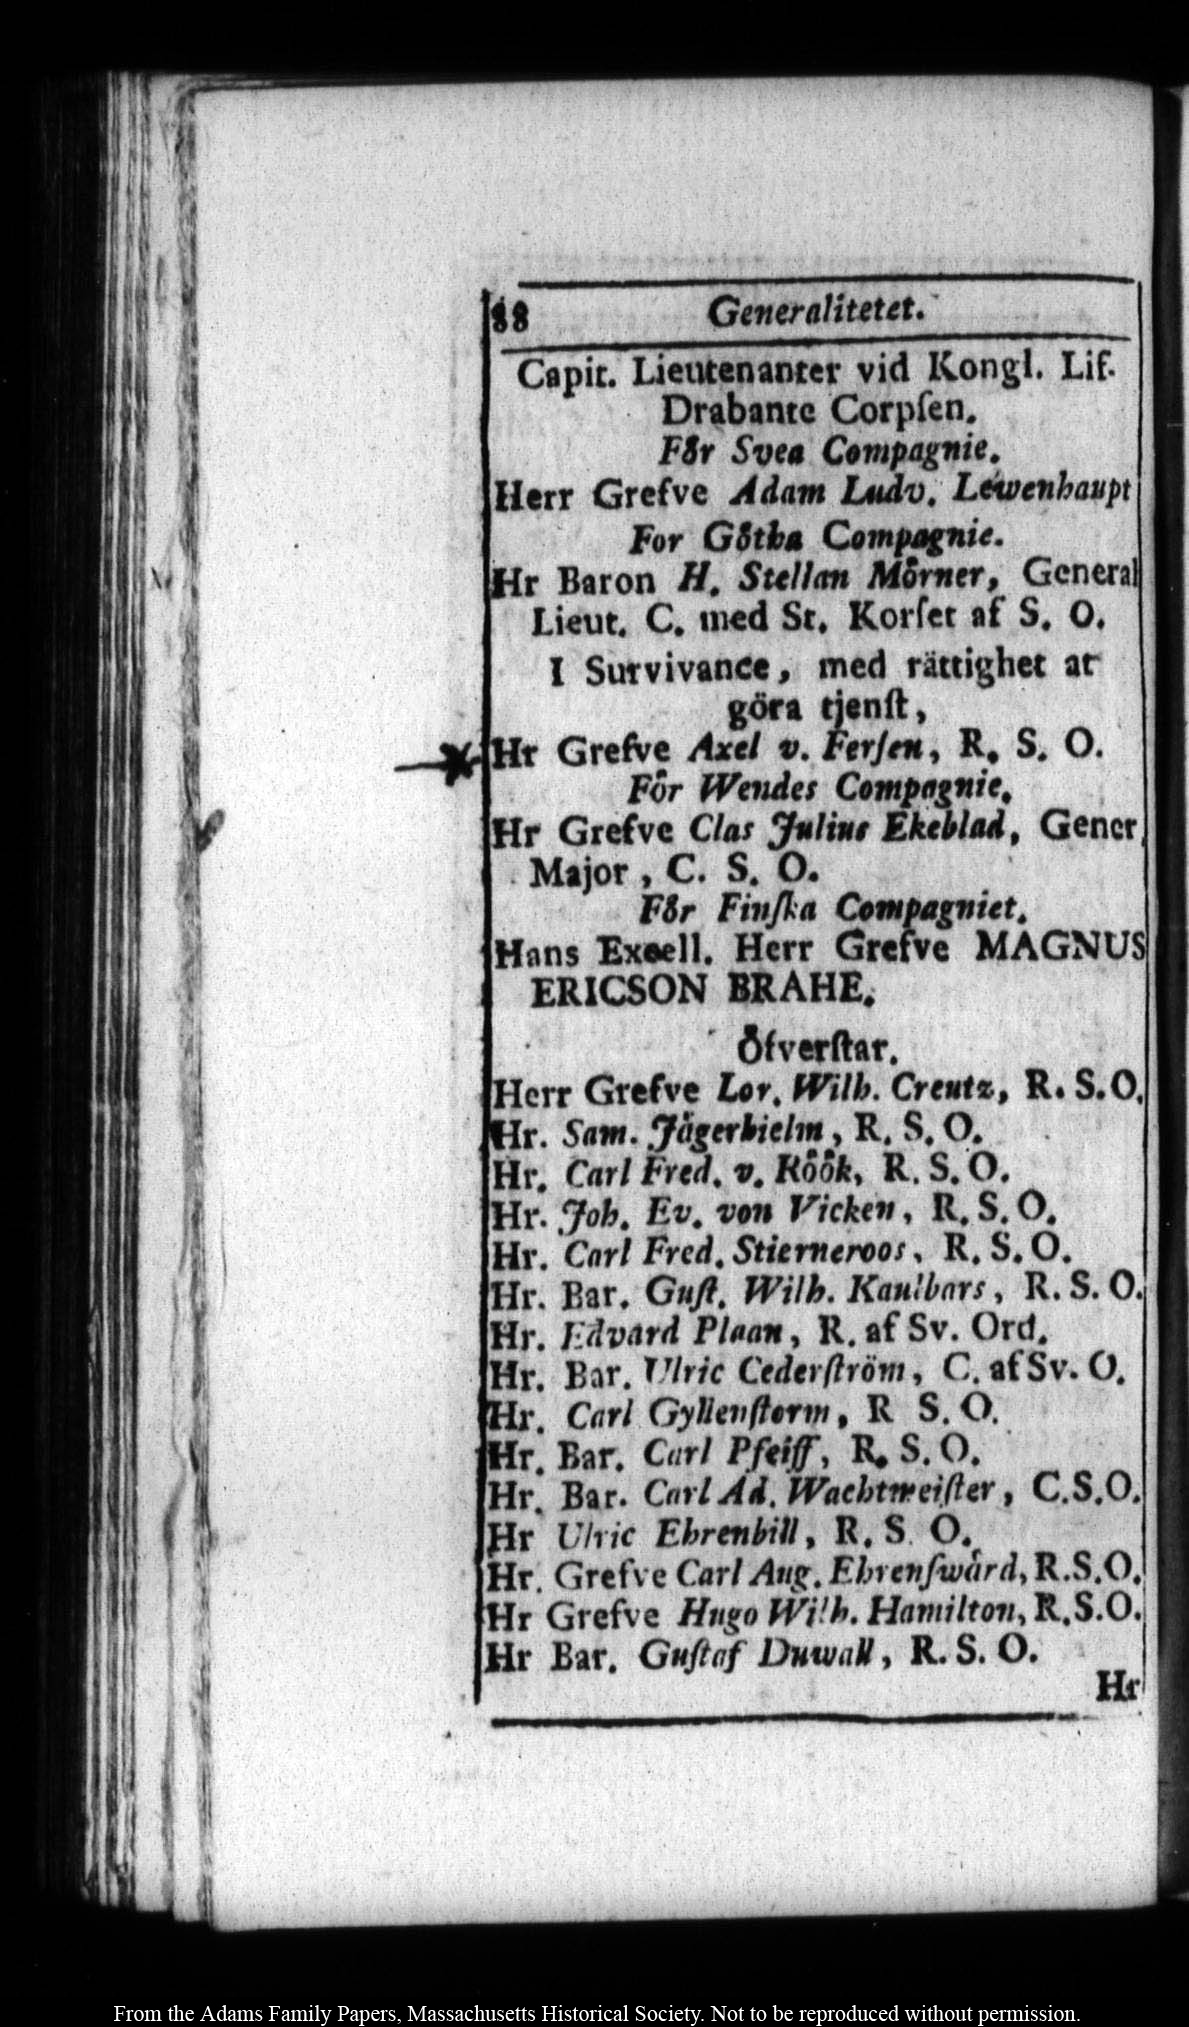 88 Generalitetet.
Capit. Lieutenanter vid Kongl. Lif-
Drabante Corpſen.
För Svea Compagnie.
Herr Grefve Adam Ludv. Lewenhaupt
For Götha Compagnie.
Hr Baron H. Stellan Mörner, General
Lieut. C. med St. Korſet af S. O.
I Survivance, med rättighet at
göra tjenſt,
Hr Grefve Axel v. Ferſen, R. S. O.
För Wendes Compagnie.
Hr Grefve Clas Julius Ekeblad, Gener.
Major, C. S. O.
För Finſka Compagniet.
Hans Excell. Herr Grefve MAGNUS
ERICSON BRAHE.
Öfverſtar.
Herr Grefve Lor. Wilh. Creutz, R. S. O.
Hr. Sam. Jägerhielm, R. S. O.
Hr. Carl Fred. v. Röök, R. S. O.
Hr. Joh. Ev. von Vicken, R. S. O.
Hr. Carl Fred. Stierneroos, R. S. O.
Hr. Bar. Guſt. Wilh. Kaulbars, R. S. O.
Hr. Edvard Plaan, R. af Sv. Ord.
Hr. Bar. Ulric Cederſtröm, C. af Sv. O.
Hr. Carl Gyllenſtorm, R S. O.
Hr. Bar. Carl Pfeiff, R. S. O.
Hr. Bar. Carl Ad. Wachtmeiſter, C.S.O.
Hr Ulric Ehrenbill, R. S. O.
Hr. Grefve Carl Aug. Ehrenſwärd, R.S.O.
Hr Grefve Hugo Wilh. Hamilton, R.S.O.
Hr Bar. Guſtaf Duwall, R. S. O.
Hr
From the Adams Family Papers, Massachusetts Historical Society. Not to be reproduced without permission.